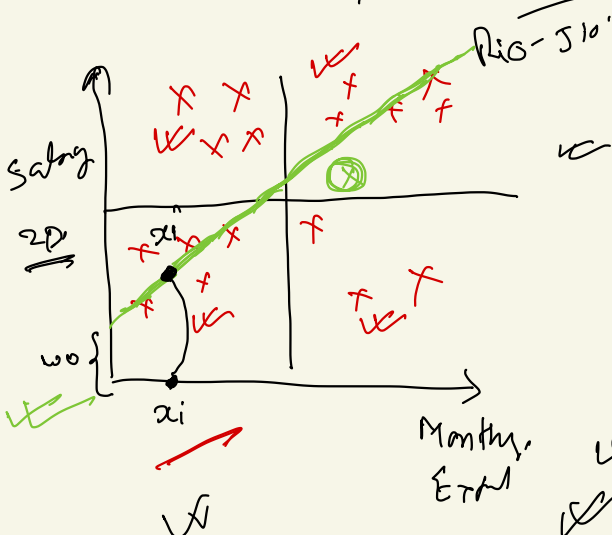 Salary
2D
xi
wo {
xi
Monthly